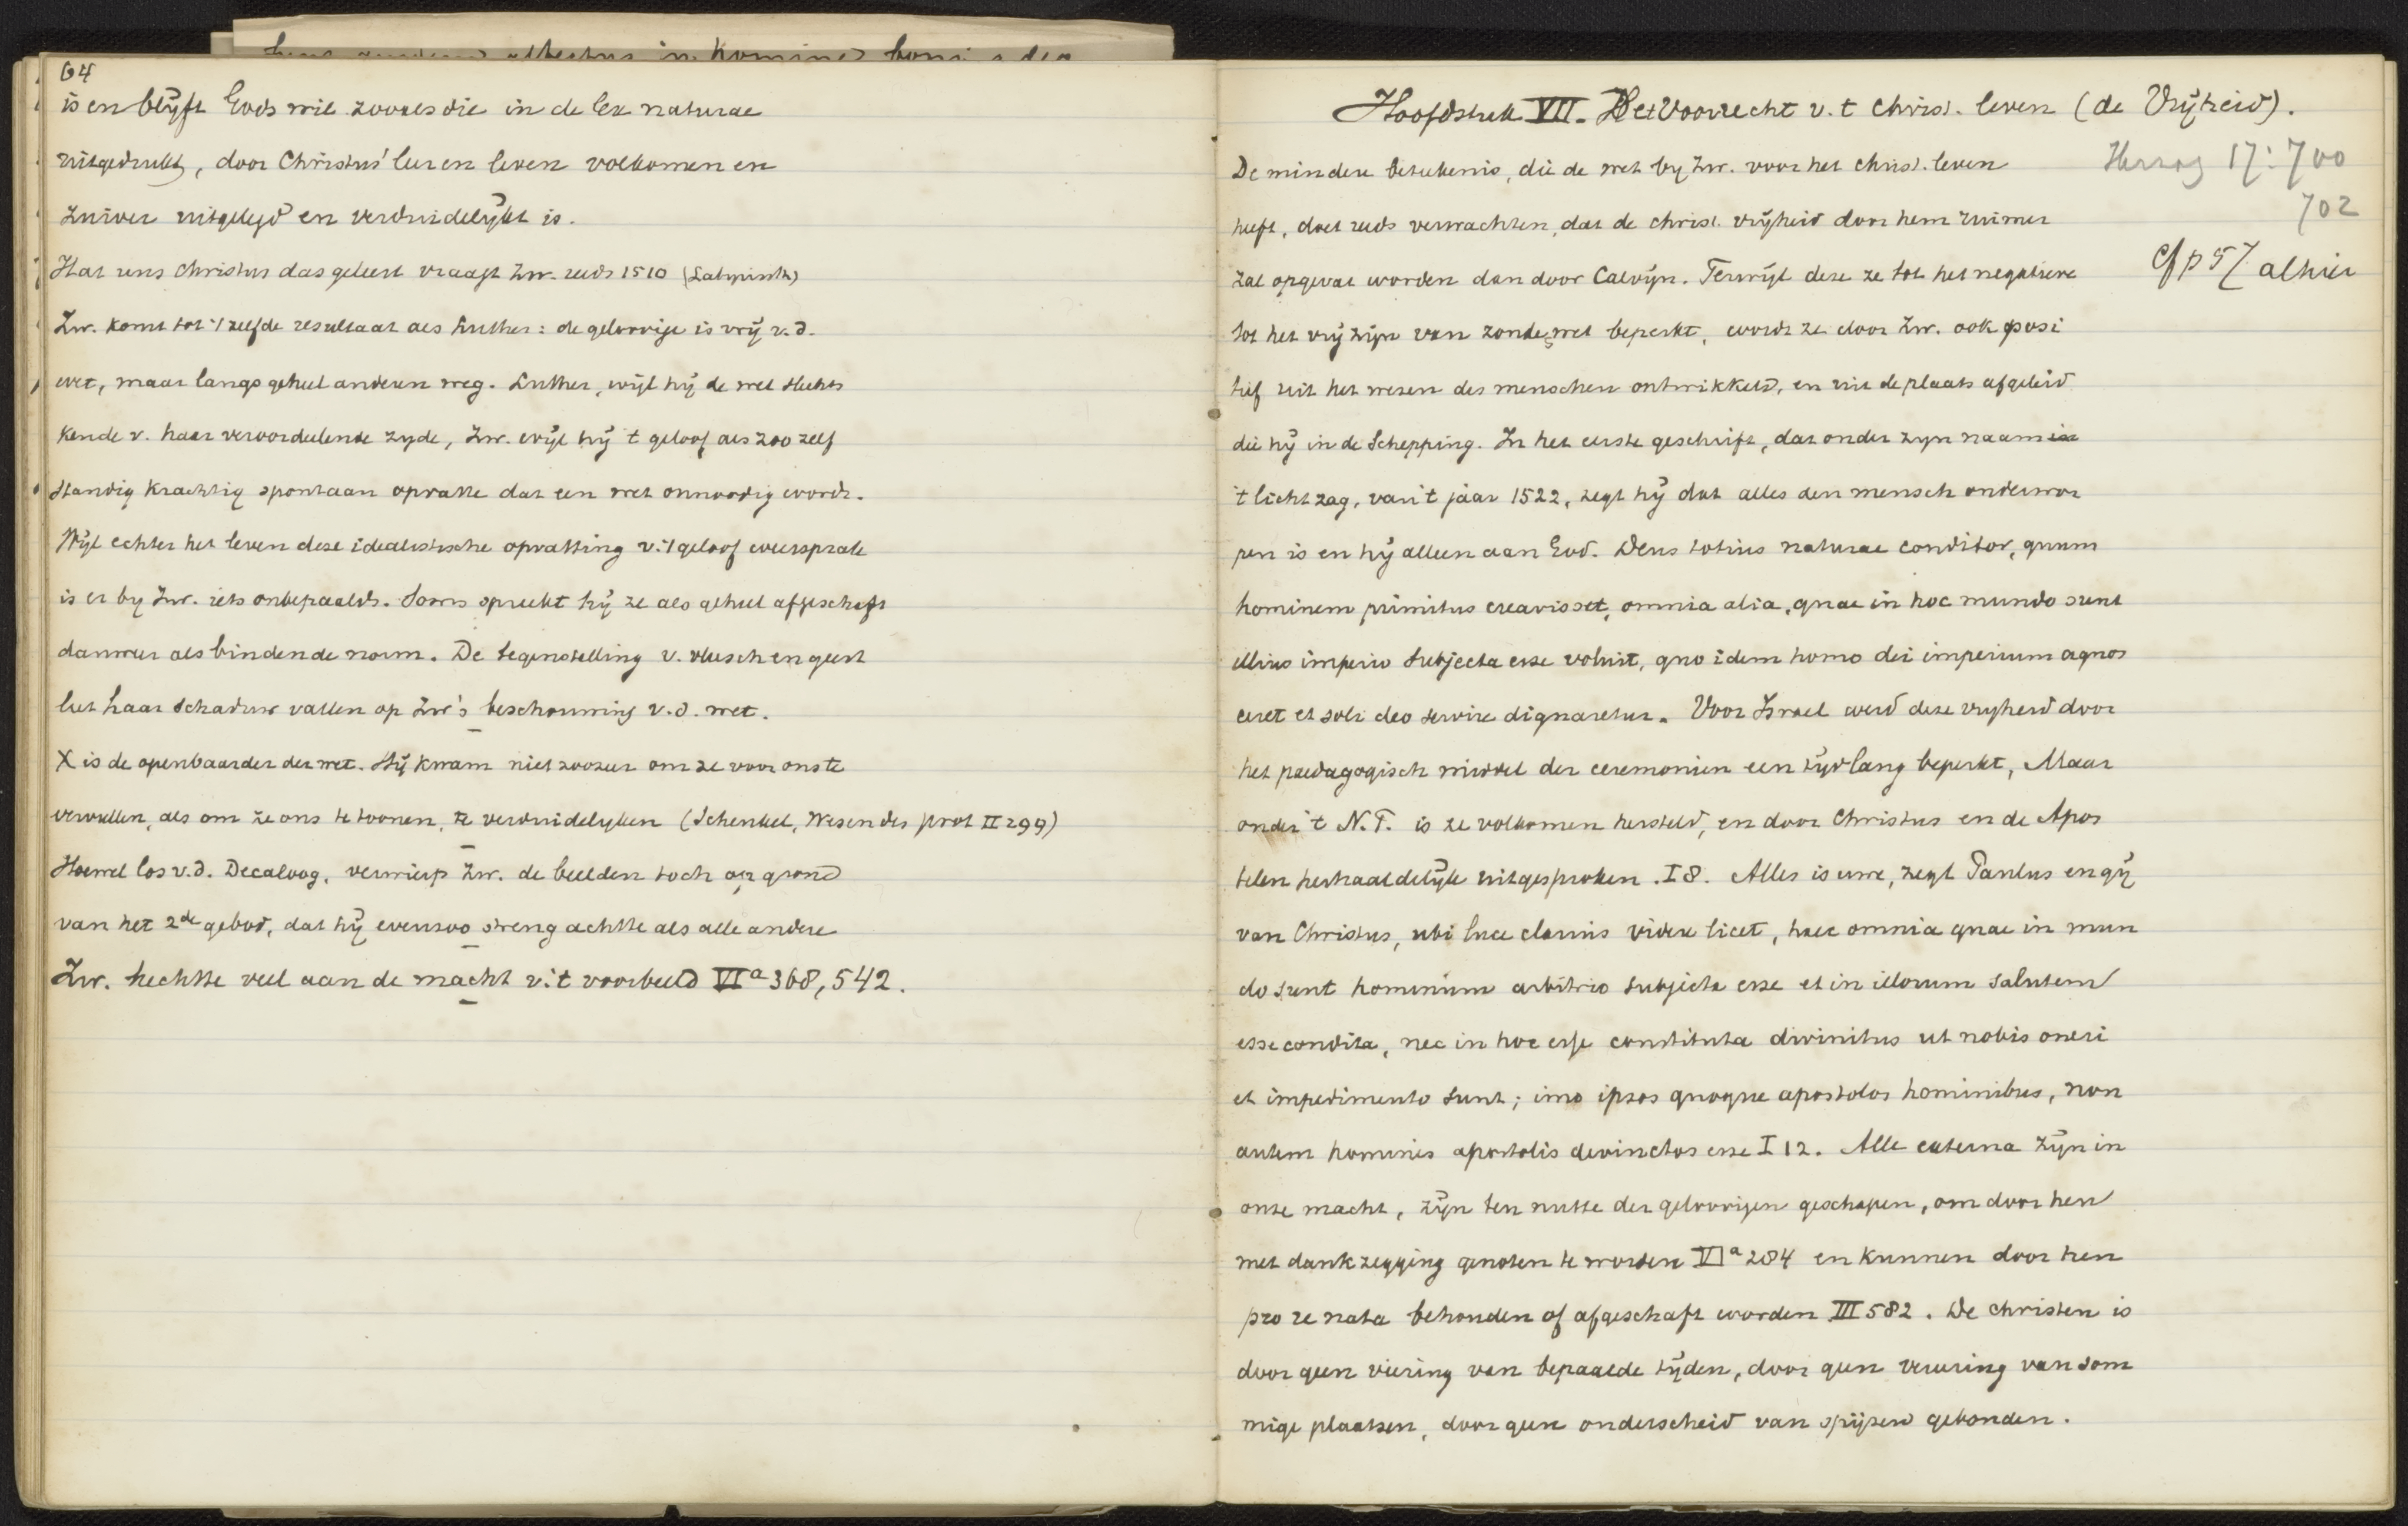 64
is en blijft Gods wil zooals die in de lex naturae
uitgedrukt, door Christus' leer en leven volkomen en
zuiver uitgelegd en verduidelijkt is.
Hat uns Christus das gelert vraagt Zw. reeds 1510 (Labyrinth)
Zw. komt tot 't zelfde resultaat als Luther: de geloovige is vrij v.d.
wet, maar langs geheel anderen weg. Luther, wijl hij de wet slechts
kende v. haar veroordeelende zyde, Zw. wijl hij 't geloof als zoo zelf
standig krachtig spontaan opvatte dat een wet onnoodig wordt.
Wijl echter het leven deze idealistische opvatting v. 't geloof weersprak
is er by Zw. iets onbepaalds. Soms spreekt hij ze als geheel afgeschaft
dan weer als bindende norm. De tegenstelling v. vleesch en geest
liet haar schaduw vallen op Zw's beschouwing v.d. wet.
X is de openbaarder der wet. Hij kwam niet zoozeer om ze voor ons te
vervullen, als om ze ons te toonen, te verduidelyken (Schenkel, Wesen des prot II 299)
Hoewel los v.d. Decaloog, verwierp Zw. de beelden toch op grond
van het 2de gebod, dat hij evenzoo streng achtte als alle andere
Zw. hechtte veel aan de macht v. 't voorbeeld VIa 368, 542.
Hoofdstuk VII. Het Voorrecht v. t christ. leven (de Vrijheid).
De mindere beteekenis, die de wet by Zw. voor het christ. leven
heeft, doet reeds verwachten, dat de christ. vrijheid door hem ruimer
zal opgevat worden dan door Calvijn. Terwijl deze ze tot het negatieve
tot het vrij zijn van zonde, wet beperkt, wordt ze door Zw. ook posi
tief uit het wezen des menschen ontwikkeld, en uit de plaats afgeleid
die hij in de Schepping. In het eerste geschrift, dat onder zyn naam in
't licht zag, van 't jaar 1522, zegt hij dat alles den mensch onderwor
pen is en hij alleen aan God. Deus totius naturae conditor, quum
hominem primitus creavisset, omnia alia, quae in hoc mundo sunt
illius imperio subjecta esse voluit, quo idem homo dei imperium agnos
ceret et soli deo servire dignaretur. Voor Israel werd deze vryheid door
het paedagogisch middel der ceremonien een tijdlang beperkt, Maar
onder 't N.T. is ze volkomen hersteld, en door Christus en de Apos
telen herhaaldelijk uitgesproken. I 8. Alles is uwe, zegt Paulus en gij
van Christus, ubi luce clarius videre licet, haec omnia quae in mun
do sunt hominum arbitrio subjecta esse et in illorum salutem
esse condita, nec in hoc esse constituta divinitus ut nobis oneri
et impedimento sunt; imo ipsos quoque apostolos hominibus, non
autem homines apostolis devinctos esse I 12. Alle externa zijn in
onze macht, zijn ten nutte der geloovigen geschapen, om door hen
met dankzegging genoten te worden VIa 204 en kunnen door hen
pro re nata behouden of afgeschaft worden III 582. De christen is
door geen viering van bepaalde tijden, door geen vereering van som
mige plaatsen, door geen onderscheid van spijzen gebonden.
Herzog 17: 700
702
Cf p 57 alhier